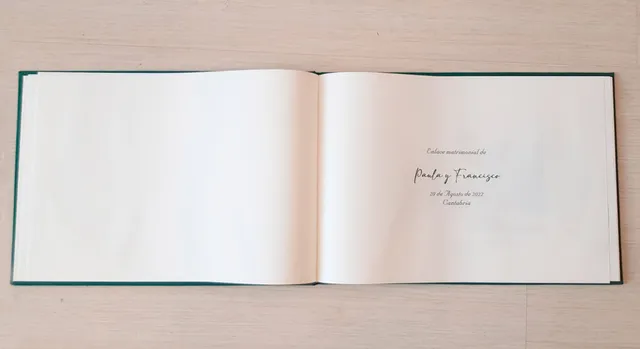 Enlace matrimonial de
Paula y Francisco
20 de Agosto de 2022
Cantabria